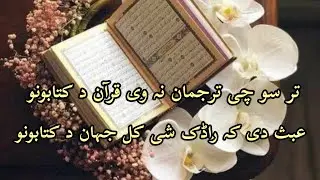 تر سو چی ترجمان نہ وی قرآن د کتابونو
عبث دی کہ راڈک شی کل جہان د کتابونو